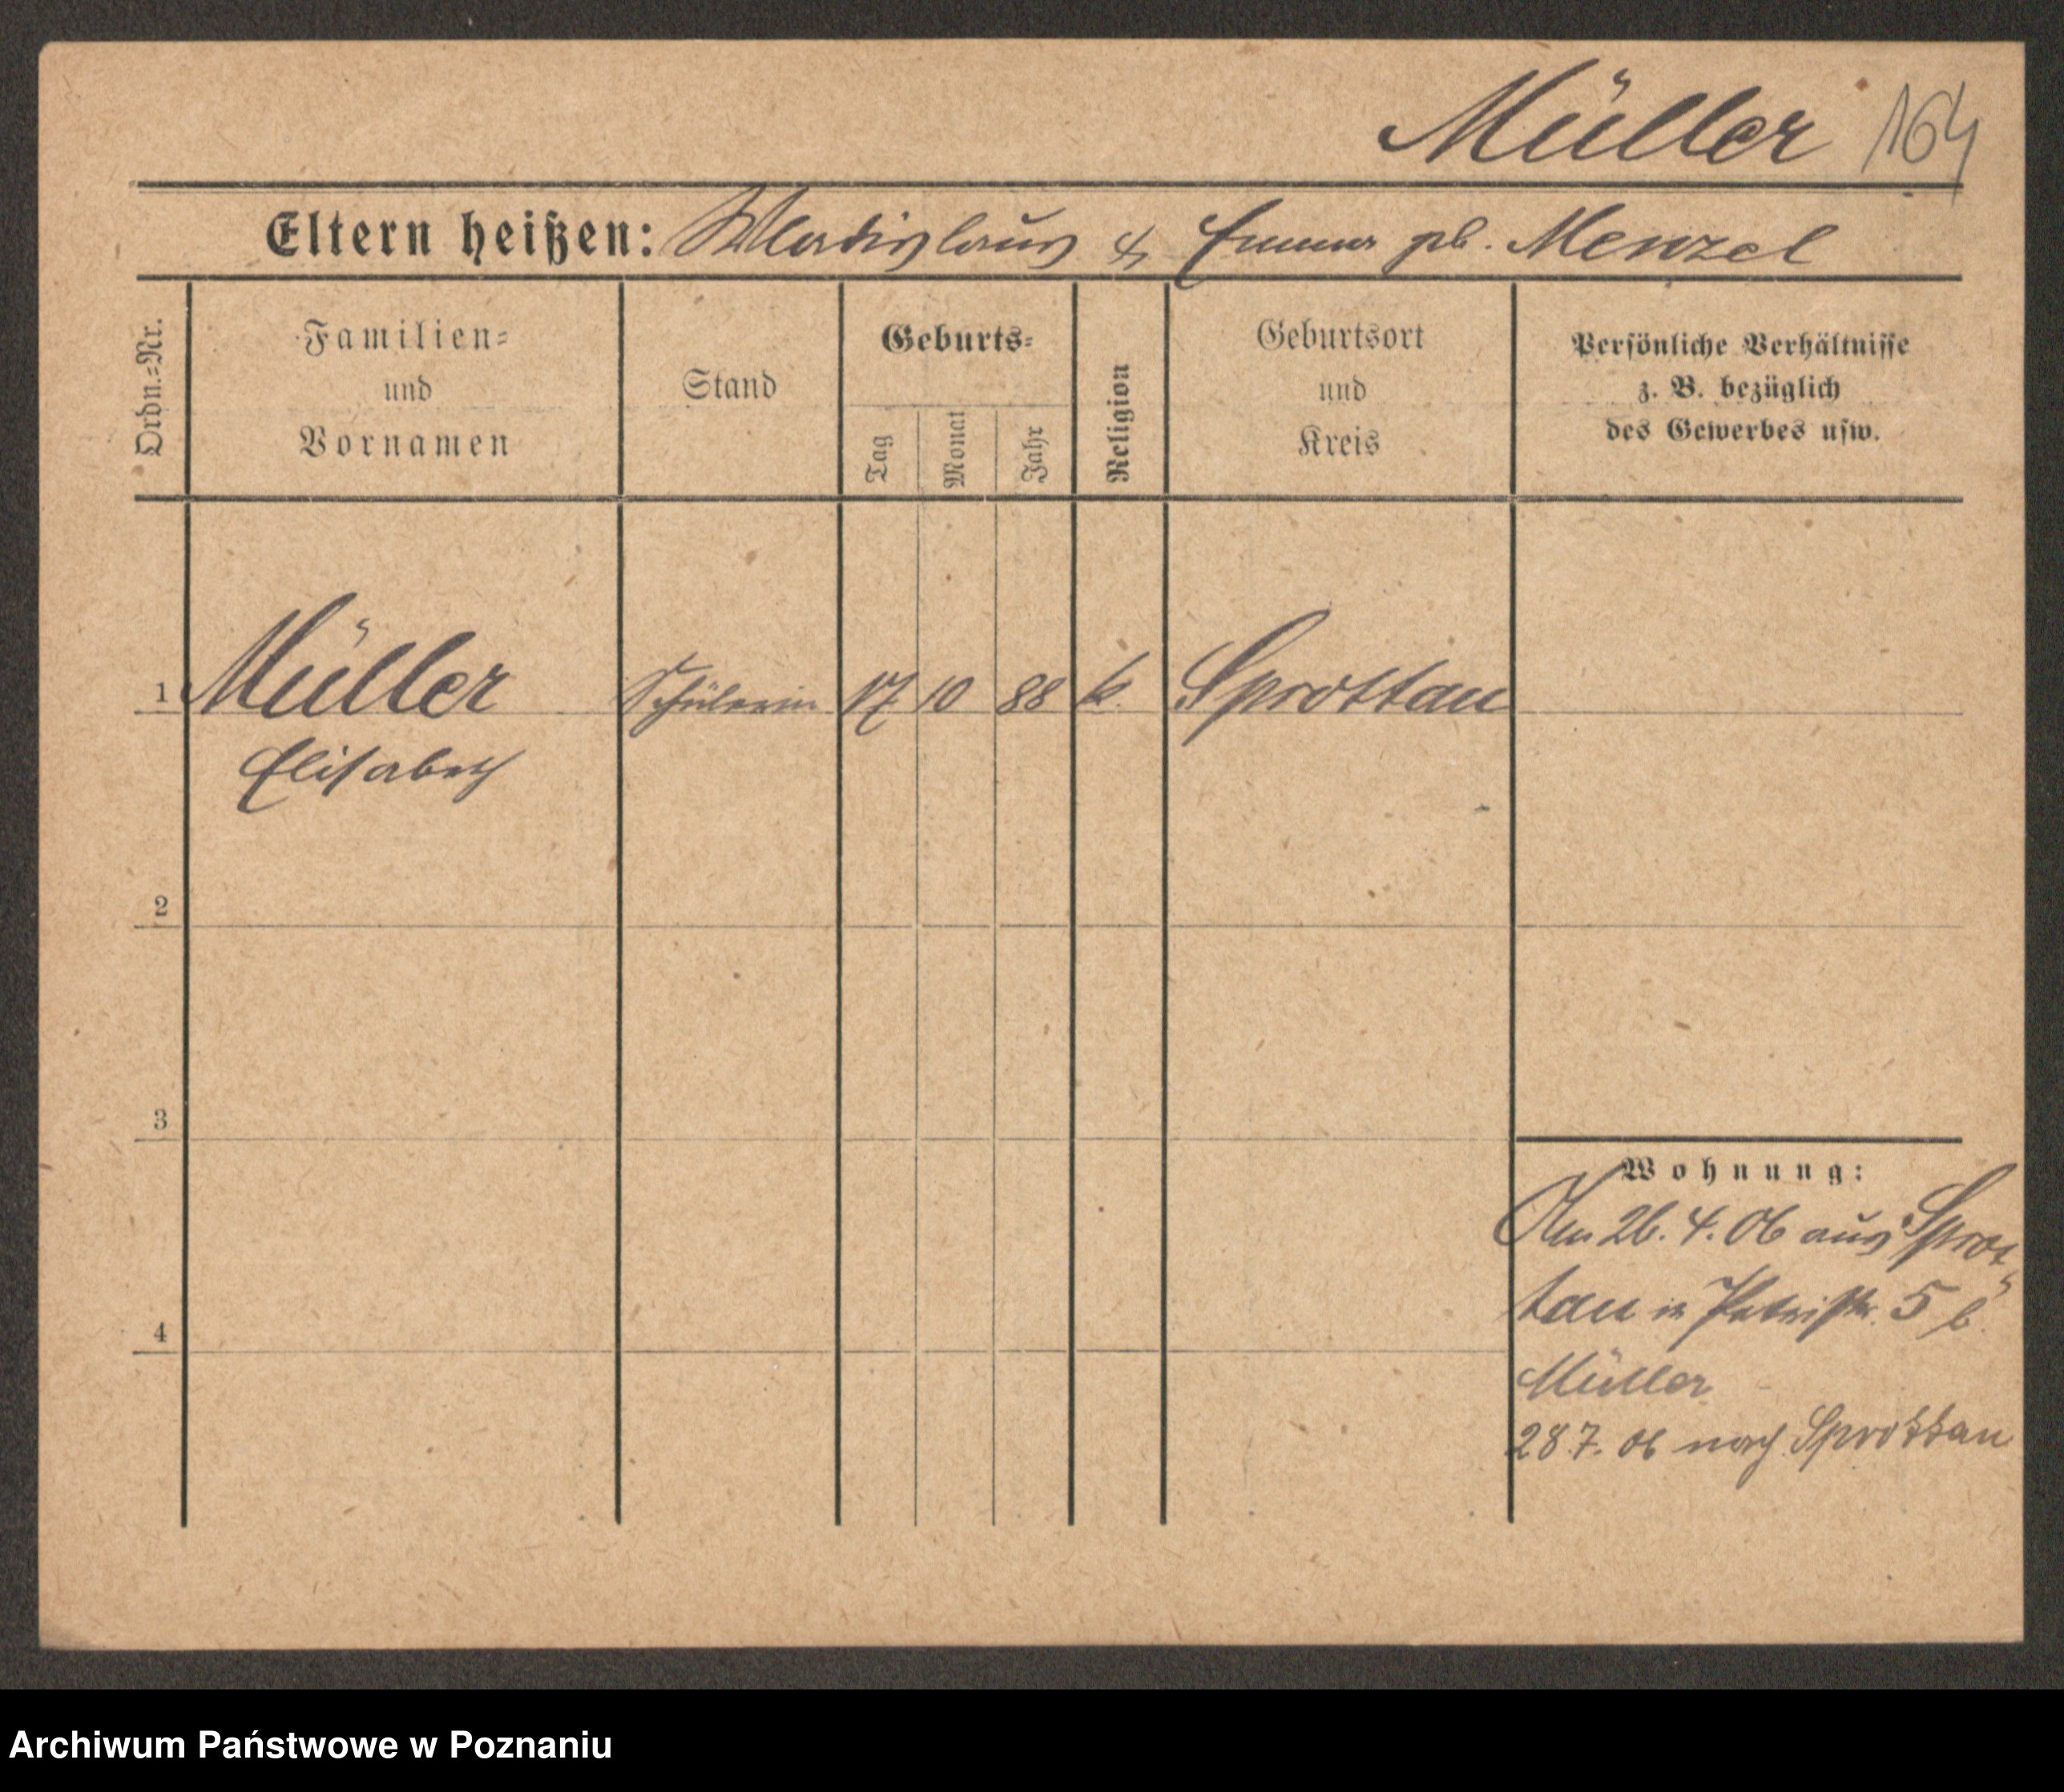 Müller 164
Eltern heißen: Wladislaus & Emma gb. Menzel
Ordn.-Nr.
Familien-
und
Vornamen
Stand
Geburts-
Tag
Monat
Jahr
Religion
Geburtsort
und
Kreis
Persönliche Verhältnisse
z. B. bezüglich
des Gewerbes usw.
1 Müller Schülerin 17 10 88 k. Sprottau
Elisabeth
2
3
4
Wohnung:
Am 26. 4. 06 aus Sprot-
tau in Petristr. 5 b.
Müller
28 7. 06 nach Sprottau
Archiwum Państwowe w Poznaniu